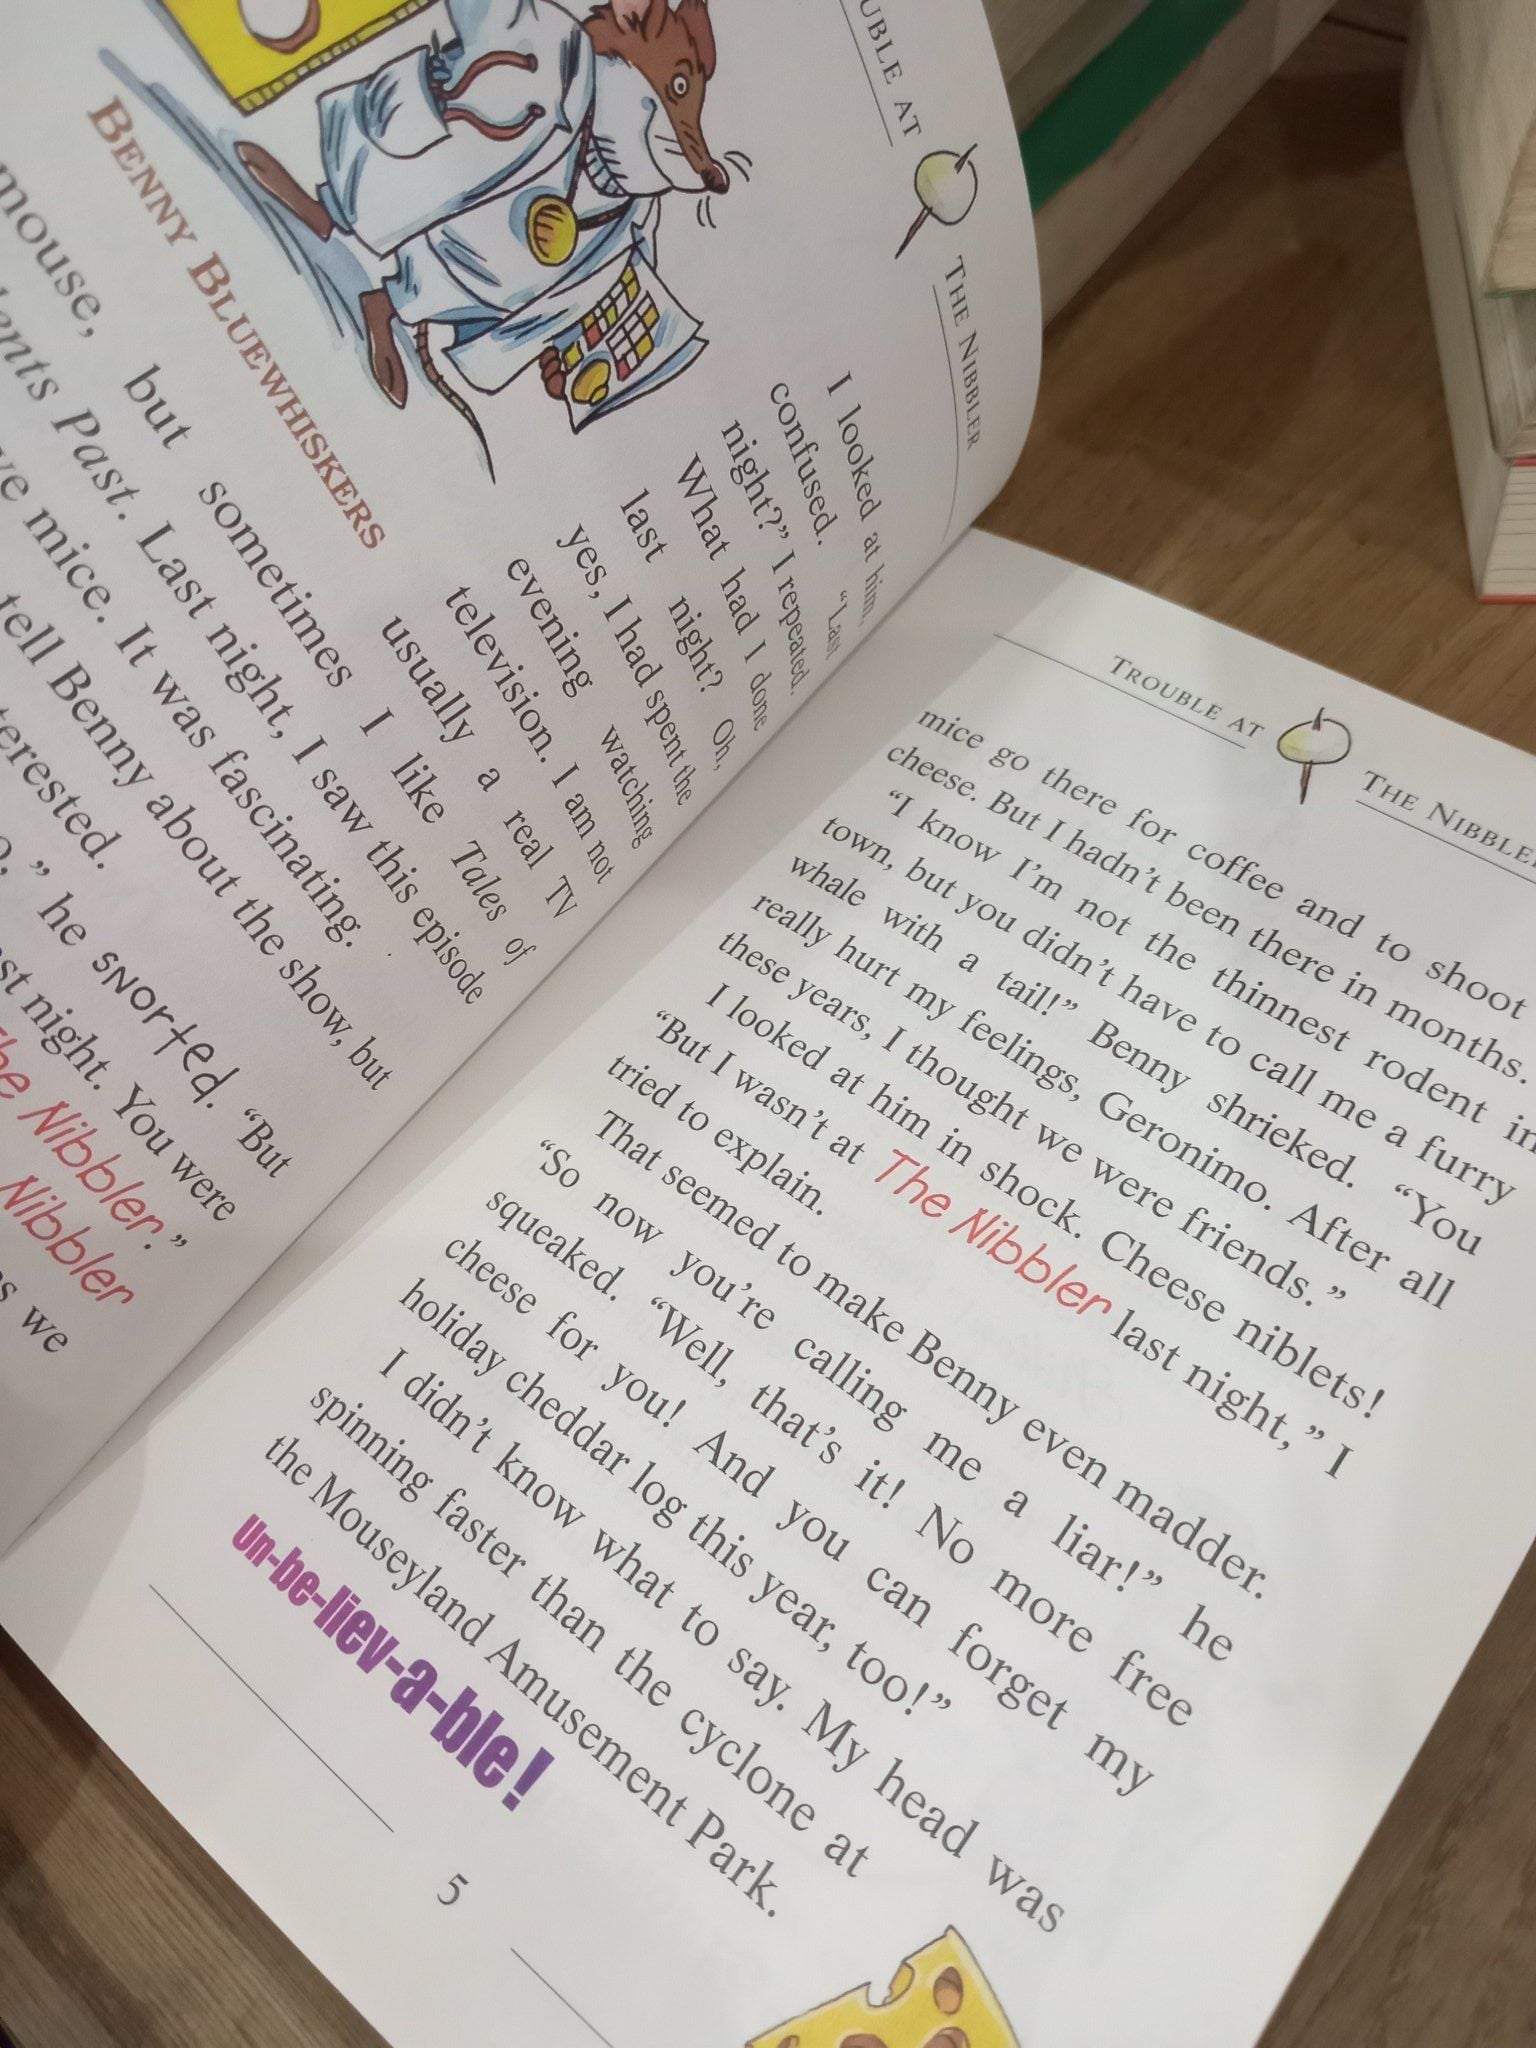 UBLE AT THE NIBBLER
BENNY BLUEWHISKERS
I looked at him,
confused. “Last
night?” I repeated.
What had I done
last night? Oh,
yes, I had spent the
evening watching
television. I am not
usually a real TV
mouse, but sometimes I like Tales of
Past. Last night, I saw this episode
mice. It was fascinating.
tell Benny about the show, but
he snorted. “But
night. You were
The Nibbler.”
Nibbler
we
TROUBLE AT THE NIBBLER
mice go there for coffee and to shoot
cheese. But I hadn’t been there in months.
“I know I’m not the thinnest rodent in
town, but you didn’t have to call me a furry
whale with a tail!” Benny shrieked. “You
really hurt my feelings, Geronimo. After all
these years, I thought we were friends.”
I looked at him in shock. Cheese niblets!
“But I wasn’t at The Nibbler last night,” I
tried to explain.
That seemed to make Benny even madder.
“So now you’re calling me a liar!” he
squeaked. “Well, that’s it! No more free
cheese for you! And you can forget my
holiday cheddar log this year, too!”
I didn’t know what to say. My head was
spinning faster than the cyclone at
the Mouseyland Amusement Park.
Un-be-liev-a-ble!
5